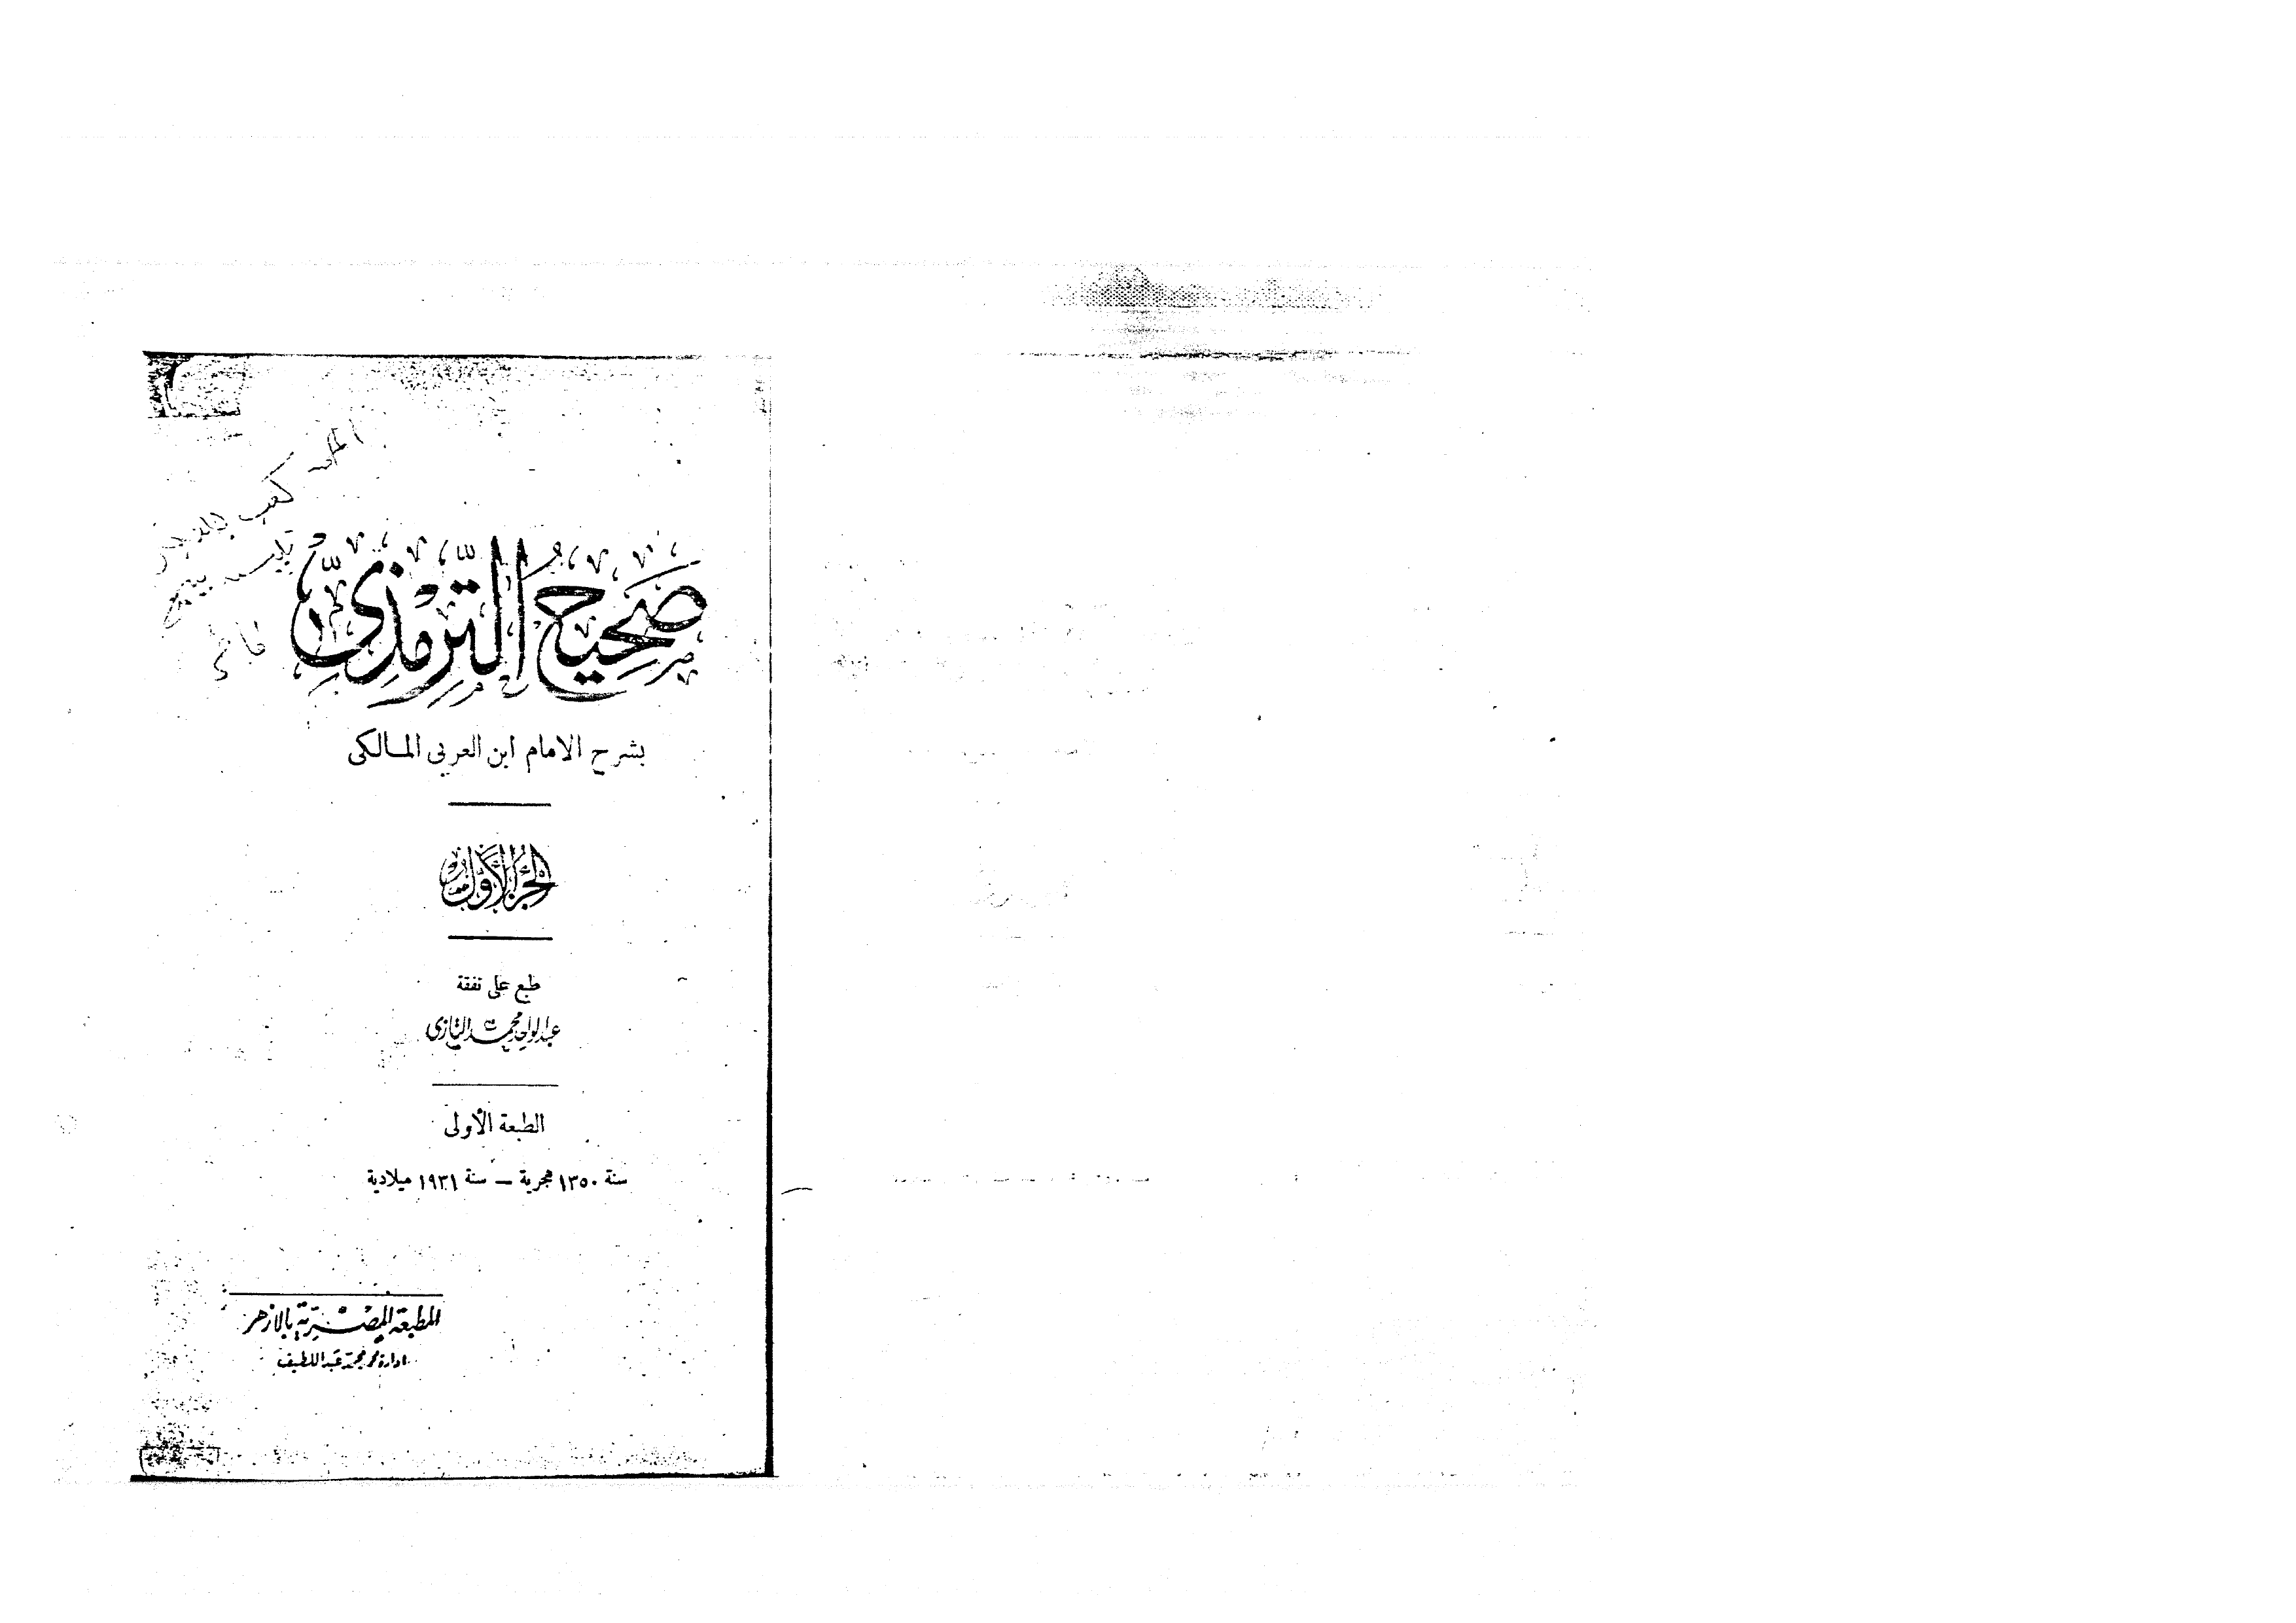 صَحِيحُ التِّرْمِذِيّ
بشرح الامام ابن العربى المالكى
الجزء الأول
طبع على نفقة
عبد الواحد محمد التازى
الطبعة الأولى
سنة ١٣٥٠ هجرية – سنة ١٩٣١ ميلادية
المطبعة المصرية بالأزهر
ادارة محمد محمد عبد اللطيف